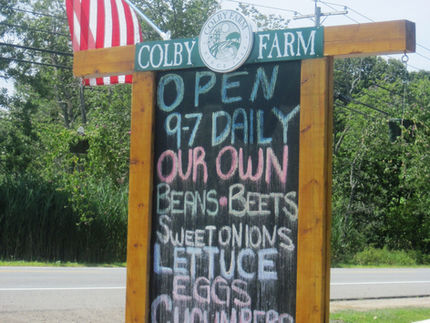 COLBY FARM
COLBY FARM
OPEN
9-7 DAILY
OUR OWN
BEANS • BEETS
SWEET ONIONS
LETTUCE
EGGS
CUCUMBERS